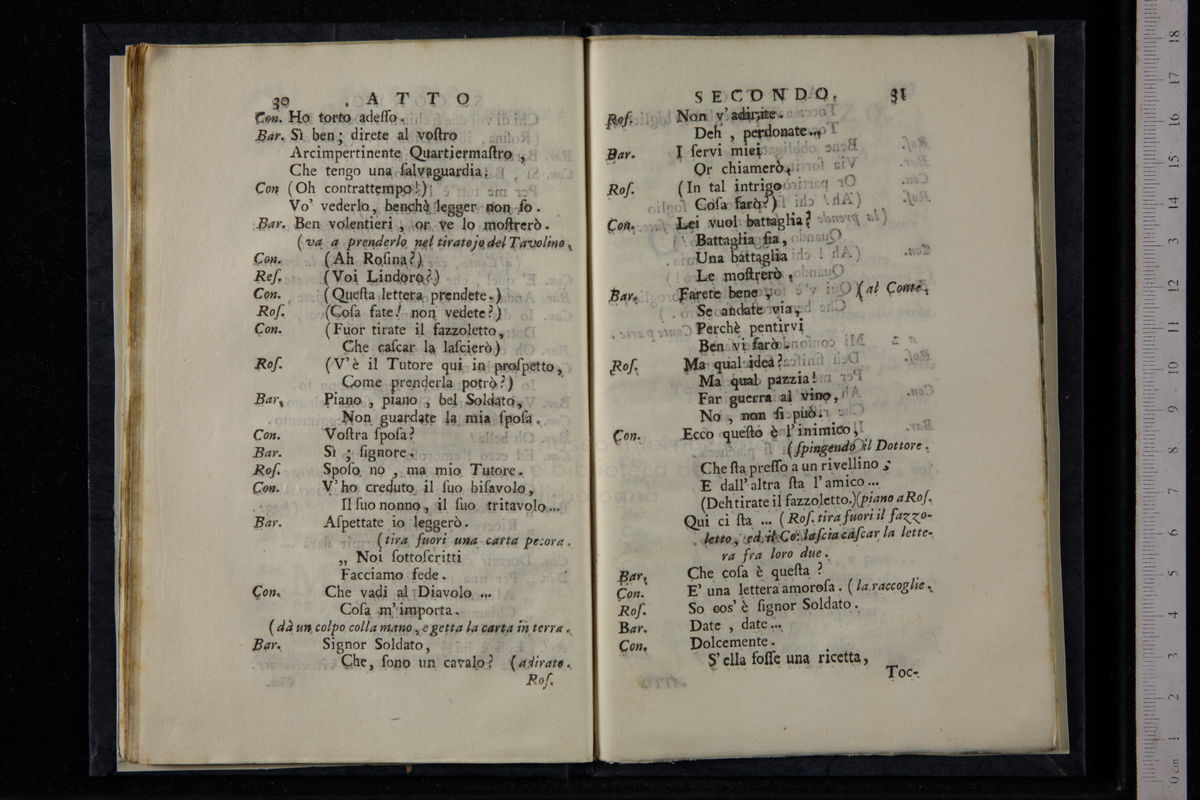 30 . A T T O
Con. Ho torto adeſſo.
Bar. Sì ben; direte al voſtro
Arcimpertinente Quartiermaſtro,
Che tengo una ſalvaguardia.
Con (Oh contrattempo!)
Vo' vederlo, benchè legger non ſo.
Bar. Ben volentieri, or ve lo moſtrerò.
(va a prenderlo nel tiratojo del Tavolino.
Con. (Ah Roſina?)
Roſ. (Voi Lindoro?)
Con. (Queſta lettera prendete.)
Roſ. (Coſa fate! non vedete?)
Con. (Fuor tirate il fazzoletto,
Che caſcar la laſcierò)
Roſ. (V'è il Tutore qui in proſpetto,
Come prenderla potrò?)
Bar. Piano, piano, bel Soldato,
Non guardate la mia ſpoſa.
Con. Voſtra ſpoſa?
Bar. Sì; ſignore.
Roſ. Spoſo no, ma mio Tutore.
Con. V'ho creduto il ſuo biſavolo,
Il ſuo nonno, il ſuo tritavolo...
Bar. Aſpettate io leggerò.
(tira fuori una carta pecora.
„ Noi ſottoſcritti
Facciamo fede.
Con. Che vadi al Diavolo ...
Coſa m'importa.
(dà un colpo colla mano, e getta la carta in terra.
Bar. Signor Soldato,
Che, ſono un cavalo? (adirato.
Roſ.
SECONDO. 31
Roſ. Non v'adirate.
Deh, perdonate...
Bar. I ſervi miei
Or chiamerò.
Roſ. (In tal intrigo
Coſa farò?)
Con. Lei vuol battaglia?
Battaglia ſia,
Una battaglia
Le moſtrerò.
Bar. Farete bene, (al Conte.
Se andate via,
Perchè pentirvi
Ben vi farò.
Roſ. Ma qual idea?
Ma qual pazzia!
Far guerra al vino,
No, non ſi può.
Con. Ecco queſto è l'inimico,
(ſpingendo il Dottore.
Che ſta preſſo a un rivellino;
E dall'altra ſta l'amico...
(Deh tirate il fazzoletto.)(piano a Roſ.
Qui ci ſta ... (Roſ. tira fuori il fazzo-
letto, ed il Co: laſcia caſcar la lette-
ra fra loro due.
Bar. Che coſa è queſta?
Con. E' una lettera amoroſa. (la raccoglie.
Roſ. So cos'è ſignor Soldato.
Bar. Date, date...
Con. Dolcemente.
S'ella foſſe una ricetta,
Toc-